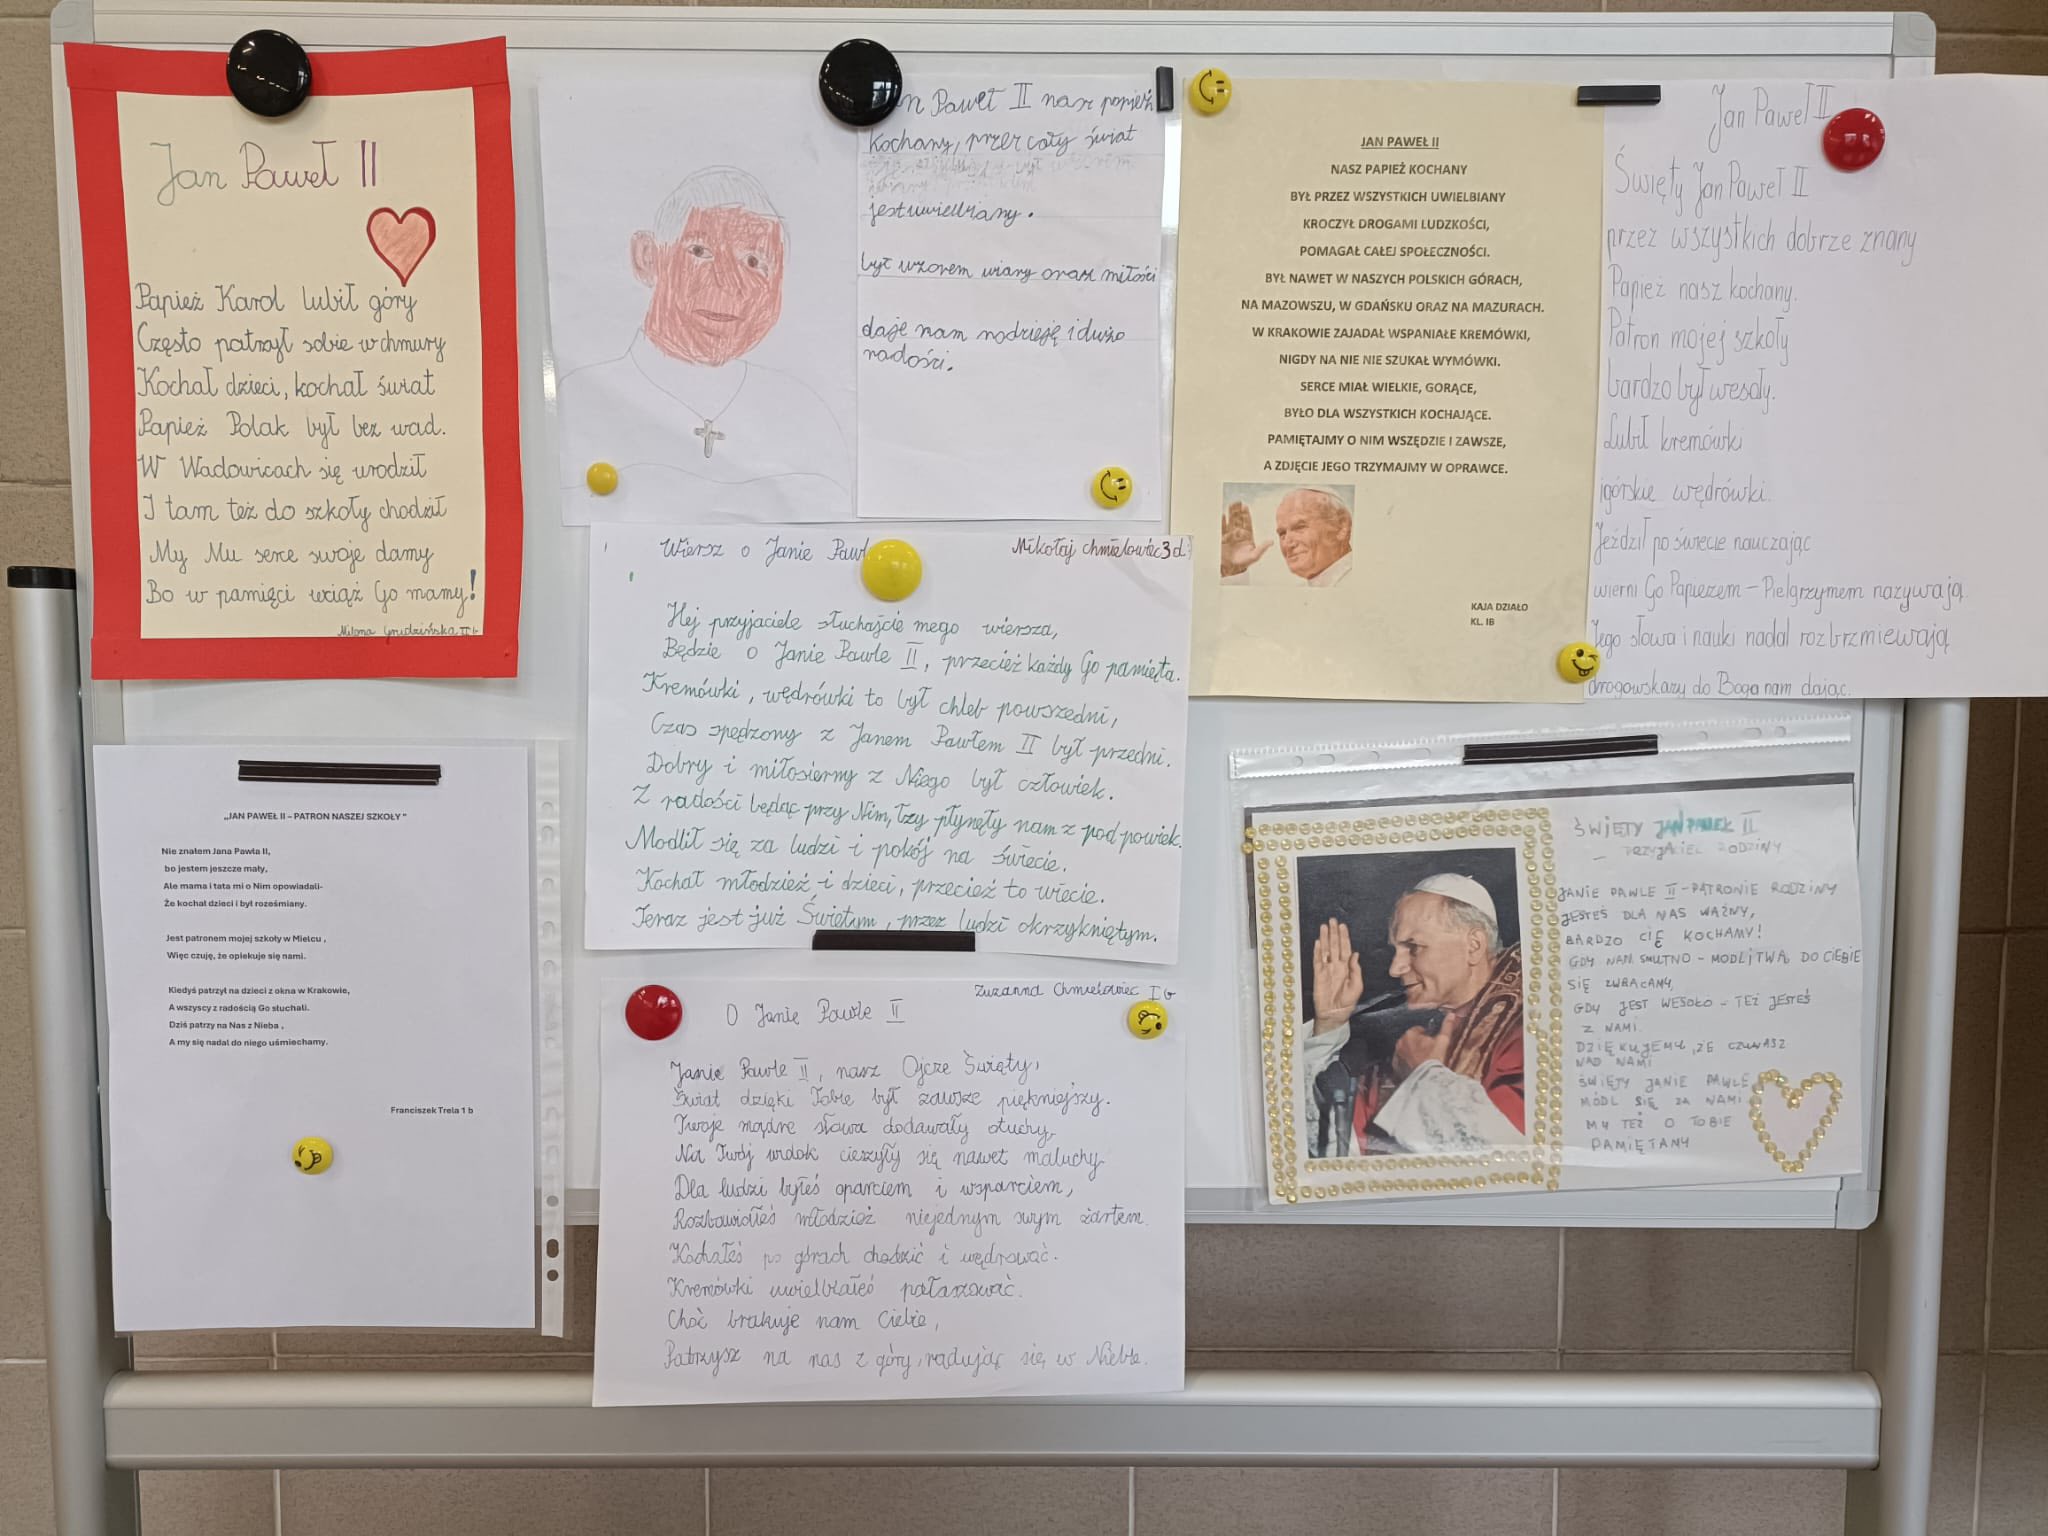 Jan Paweł II
Papież Karol lubił góry
Często patrzył sobie w chmury
Kochał dzieci, kochał świat
Papież Polak był bez wad.
W Wadowicach się urodził
I tam też do szkoły chodził
My Mu serce swoje damy
Bo w pamięci wciąż Go mamy!
Milena Grudzińska II b
n Paweł II nasz papież
kochany, przez cały świat
jest uwielbiany.
był wzorem wiary oraz miłości
daje nam nadzieję i dużo
radości.
JAN PAWEŁ II
NASZ PAPIEŻ KOCHANY
BYŁ PRZEZ WSZYSTKICH UWIELBIANY
KROCZYŁ DROGAMI LUDZKOŚCI,
POMAGAŁ CAŁEJ SPOŁECZNOŚCI.
BYŁ NAWET W NASZYCH POLSKICH GÓRACH,
NA MAZOWSZU, W GDAŃSKU ORAZ NA MAZURACH.
W KRAKOWIE ZAJADAŁ WSPANIAŁE KREMÓWKI,
NIGDY NA NIE NIE SZUKAŁ WYMÓWKI.
SERCE MIAŁ WIELKIE, GORĄCE,
BYŁO DLA WSZYSTKICH KOCHAJĄCE.
PAMIĘTAJMY O NIM WSZĘDZIE I ZAWSZE,
A ZDJĘCIE JEGO TRZYMAJMY W OPRAWCE.
KAJA DZIAŁO
KL. IB
Jan Paweł II
Święty Jan Paweł II
przez wszystkich dobrze znany
Papież nasz kochany.
Patron mojej szkoły
bardzo był wesoły.
Lubił kremówki
i górskie wędrówki.
Jeździł po świecie nauczając
wierni Go Papieżem - Pielgrzymem nazywają.
Jego słowa i nauki nadal rozbrzmiewają
drogowskazy do Boga nam dając.
Wiersz o Janie Pawl
Mikołaj Chmielowiec 3 d
Hej przyjaciele słuchajcie mego wiersza,
Będzie o Janie Pawle II, przecież każdy Go pamięta.
Kremówki, wędrówki to był chleb powszedni,
Czas spędzony z Janem Pawłem II był przedni.
Dobry i miłosierny z Niego był człowiek.
Z radości będąc przy Nim, łzy płynęły nam z pod powiek.
Modlił się za ludzi i pokój na świecie.
Kochał młodzież i dzieci, przecież to wiecie.
Teraz jest już Świętym, przez ludzi okrzykniętym.
„JAN PAWEŁ II – PATRON NASZEJ SZKOŁY"
Nie znałem Jana Pawła II,
bo jestem jeszcze mały,
Ale mama i tata mi o Nim opowiadali-
Że kochał dzieci i był roześmiany.
Jest patronem mojej szkoły w Mielcu ,
Więc czuję, że opiekuje się nami.
Kiedyś patrzył na dzieci z okna w Krakowie,
A wszyscy z radością Go słuchali.
Dziś patrzy na Nas z Nieba ,
A my się nadal do niego uśmiechamy.
Franciszek Trela 1 b
Zuzanna Chmielowiec I b
O Janie Pawle II
Janie Pawle II, nasz Ojcze Święty,
Świat dzięki Tobie był zawsze piękniejszy.
Twoje mądre słowa dodawały otuchy.
Na Twój widok cieszyły się nawet maluchy.
Dla ludzi byłeś oparciem i wsparciem,
Rozbawiałeś młodzież niejednym swym żartem.
Kochałeś po górach chodzić i wędrować.
Kremówki uwielbiałeś pałaszować.
Choć brakuje nam Ciebie,
Patrzysz na nas z góry, radując się w Niebie.
ŚWIĘTY JAN PAWEŁ II
– PRZYJACIEL RODZINY
JANIE PAWLE II - PATRONIE RODZINY
JESTEŚ DLA NAS WAŻNY,
BARDZO CIĘ KOCHAMY!
GDY NAM SMUTNO - MODLITWĄ DO CIEBIE
SIĘ ZWRACAMY,
GDY JEST WESOŁO - TEŻ JESTEŚ
Z NAMI.
DZIĘKUJEMY, ŻE CZUWASZ
NAD NAMI
ŚWIĘTY JANIE PAWLE
MÓDL SIĘ ZA NAMI
MY TEŻ O TOBIE
PAMIĘTAMY